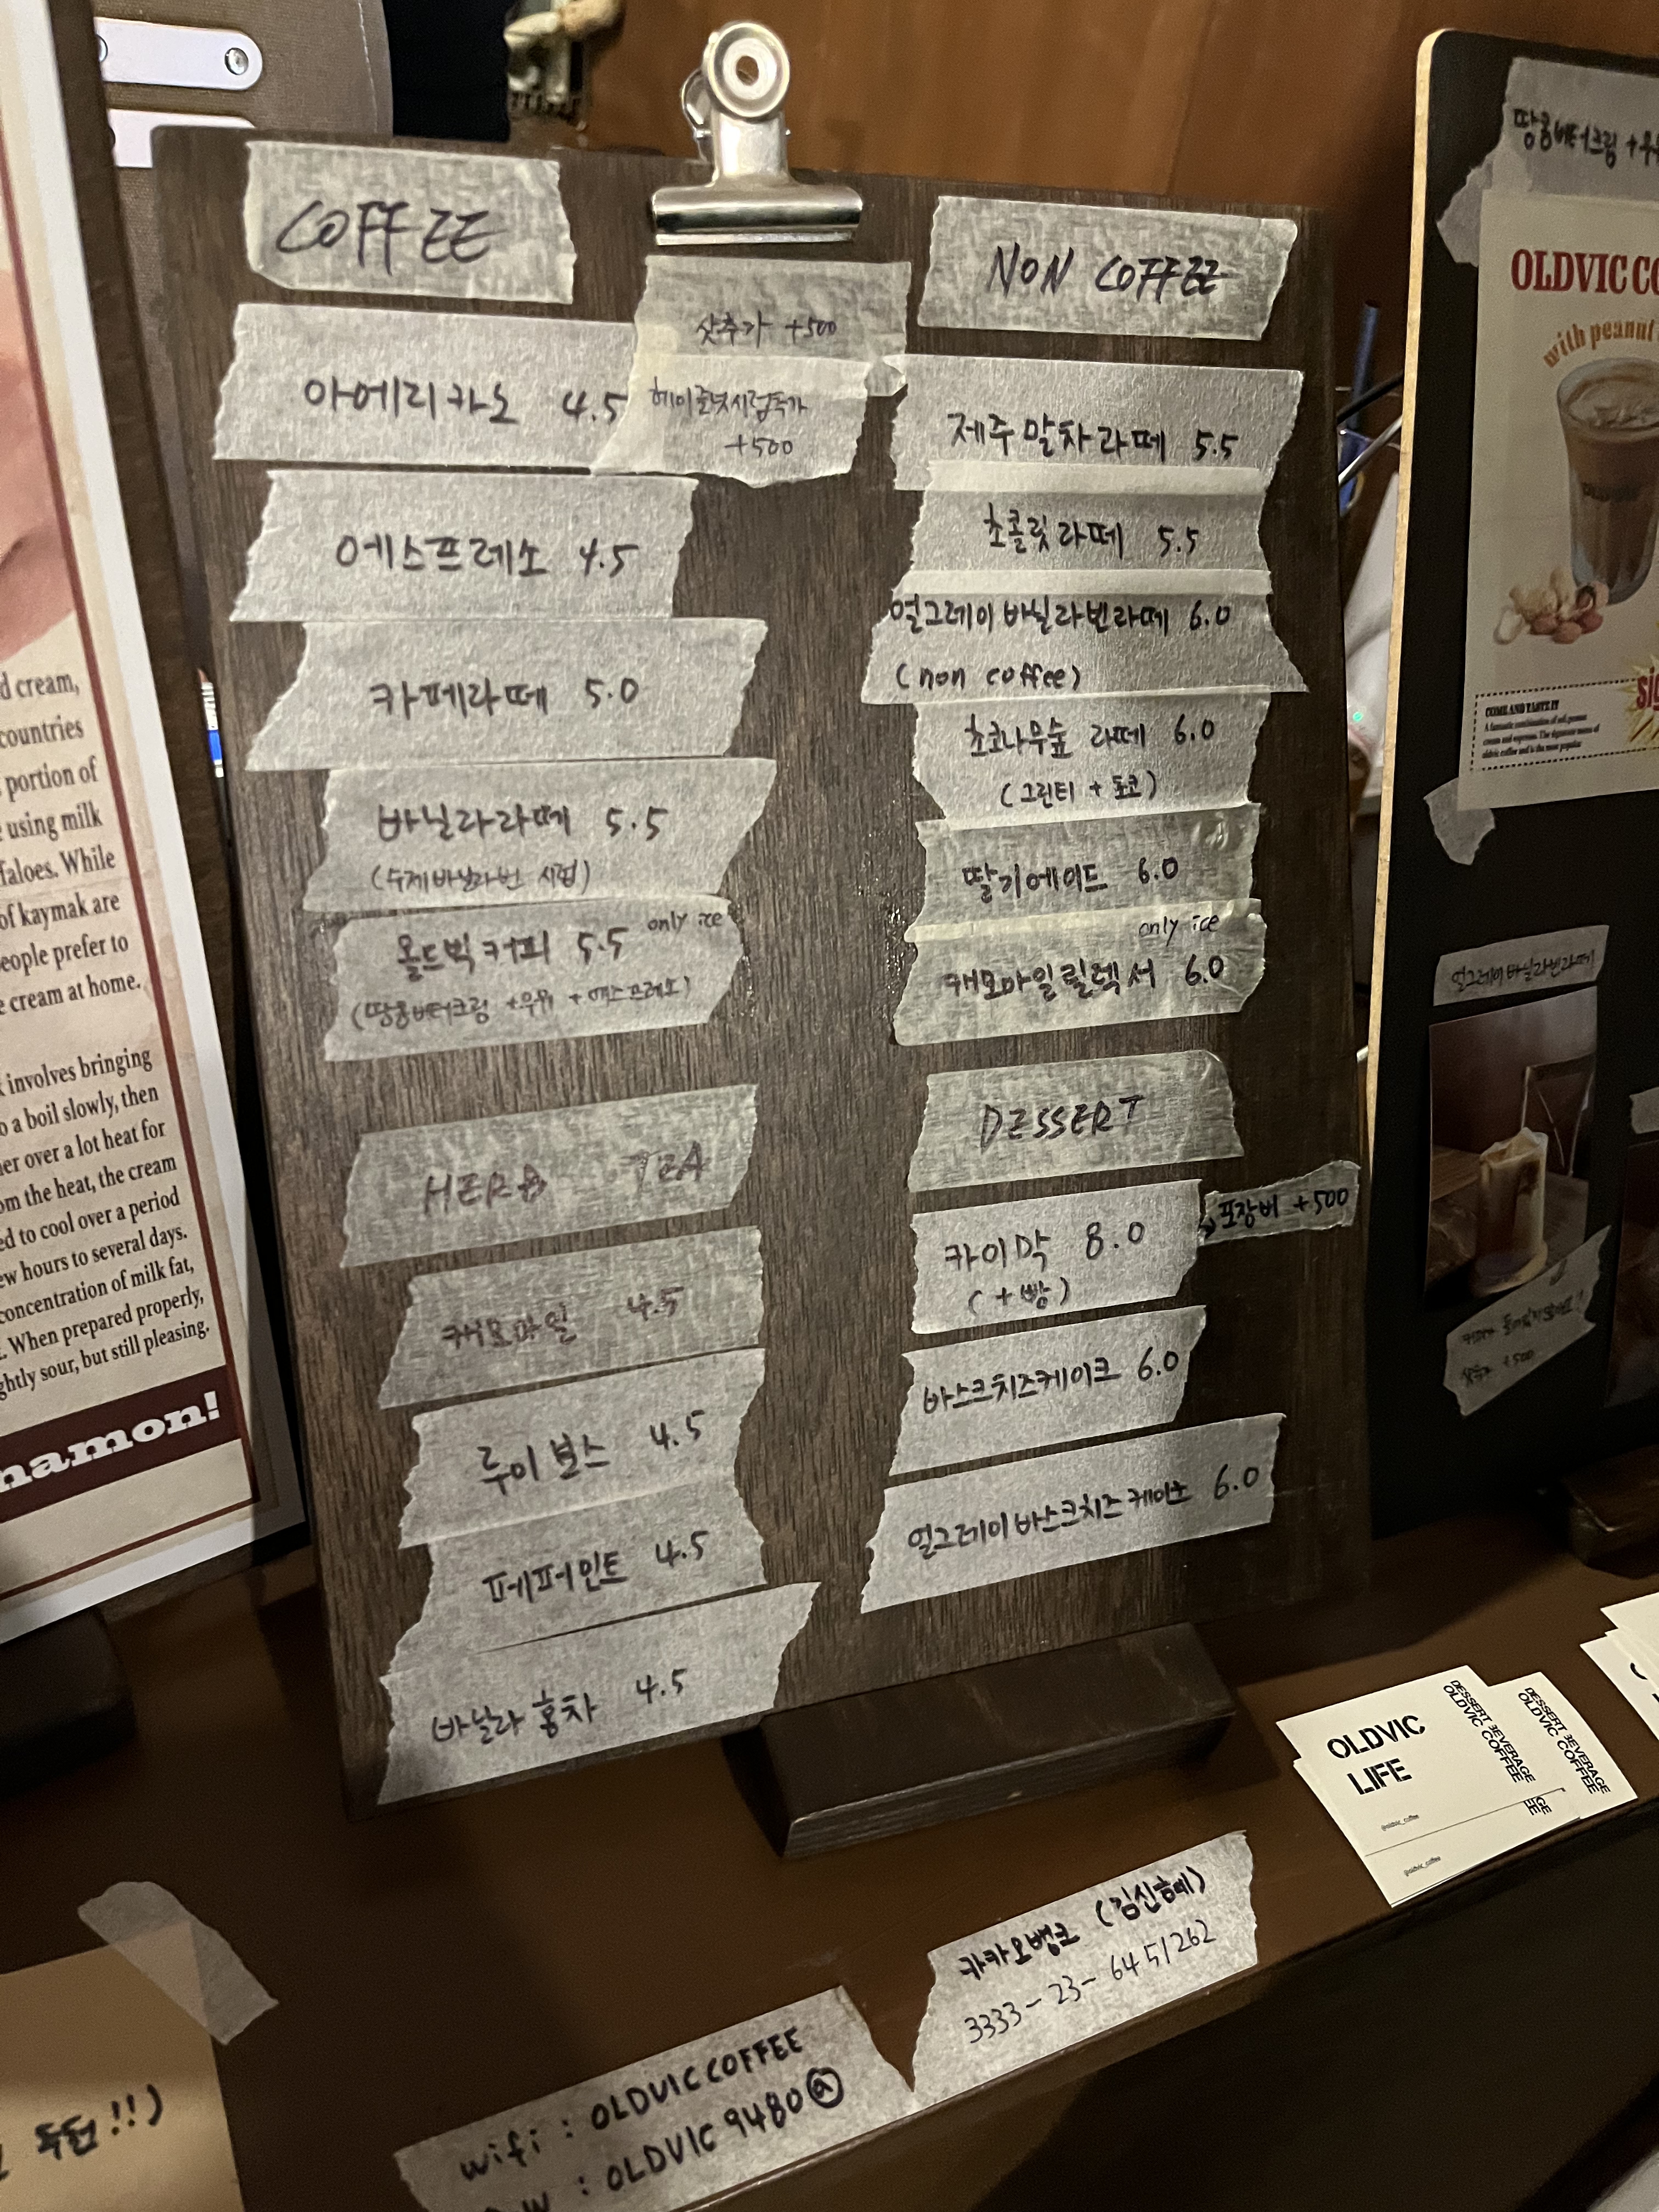 COFFEE
샷추가 +500
헤이즐넛시럽추가
+500
아메리카노 4.5
에스프레소 4.5
카페라떼 5.0
바닐라라떼 5.5
(수제바닐라빈 시럽)
올드빅커피 5.5 only ice
(땅콩버터크림 +우유 + 에스프레소)
HERB TEA
캐모마일 4.5
루이보스 4.5
페퍼민트 4.5
바닐라 홍차 4.5
NON COFFEE
제주말차라떼 5.5
초콜릿라떼 5.5
얼그레이바닐라빈라떼 6.0
(non coffee)
초코나무숲 라떼 6.0
(그린티 + 초코)
딸기에이드 6.0
only ice
캐모마일릴렉서 6.0
DESSERT
카이막 8.0
(+빵)
포장비 +500
바스크치즈케이크 6.0
얼그레이바스크치즈케이크 6.0
땅콩버터크림 +우유
OLDVIC CO
with peanut
COME AND TASTE IT
얼그레이바닐라빈라떼
+500
d cream,
countries
portion of
using milk
faloes. While
of kaymak are
eople prefer to
e cream at home.
involves bringing
o a boil slowly, then
er over a lot heat for
om the heat, the cream
ed to cool over a period
ew hours to several days.
concentration of milk fat,
. When prepared properly,
ghtly sour, but still pleasing.
namon!
OLDVIC
LIFE
DESSERT BEVERAGE
OLDVIC COFFEE
@oldvic_coffee
@oldvic_coffee
DESSERT BEVERAGE
OLDVIC COFFEE
카카오뱅크 (김신혜)
3333-23-6451262
wifi : OLDVICCOFFEE
p.w : OLDVIC9480@
!!)